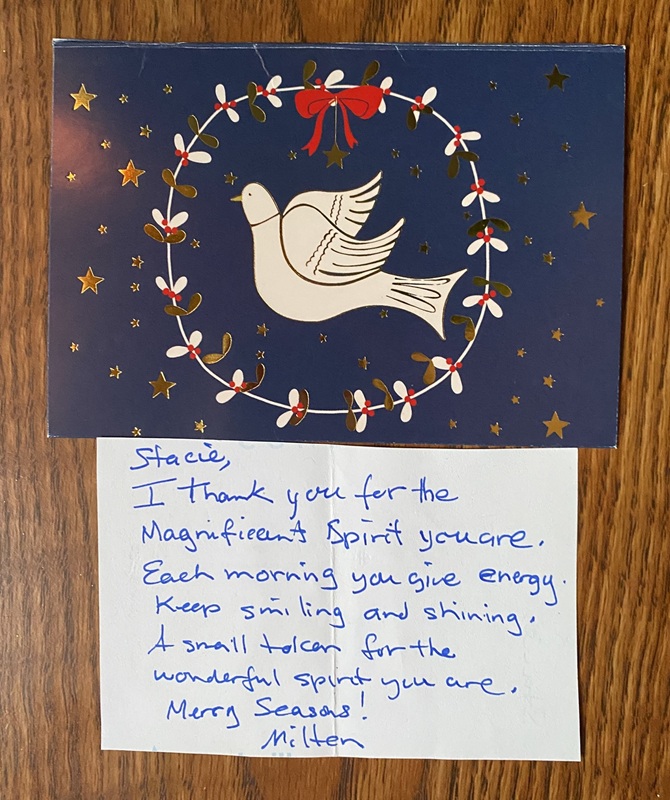 Stacie,
I thank you for the
Magnificent Spirit you are.
Each morning you give energy.
Keep smiling and shining.
A small token for the
wonderful spirit you are.
Merry Seasons!
Milten